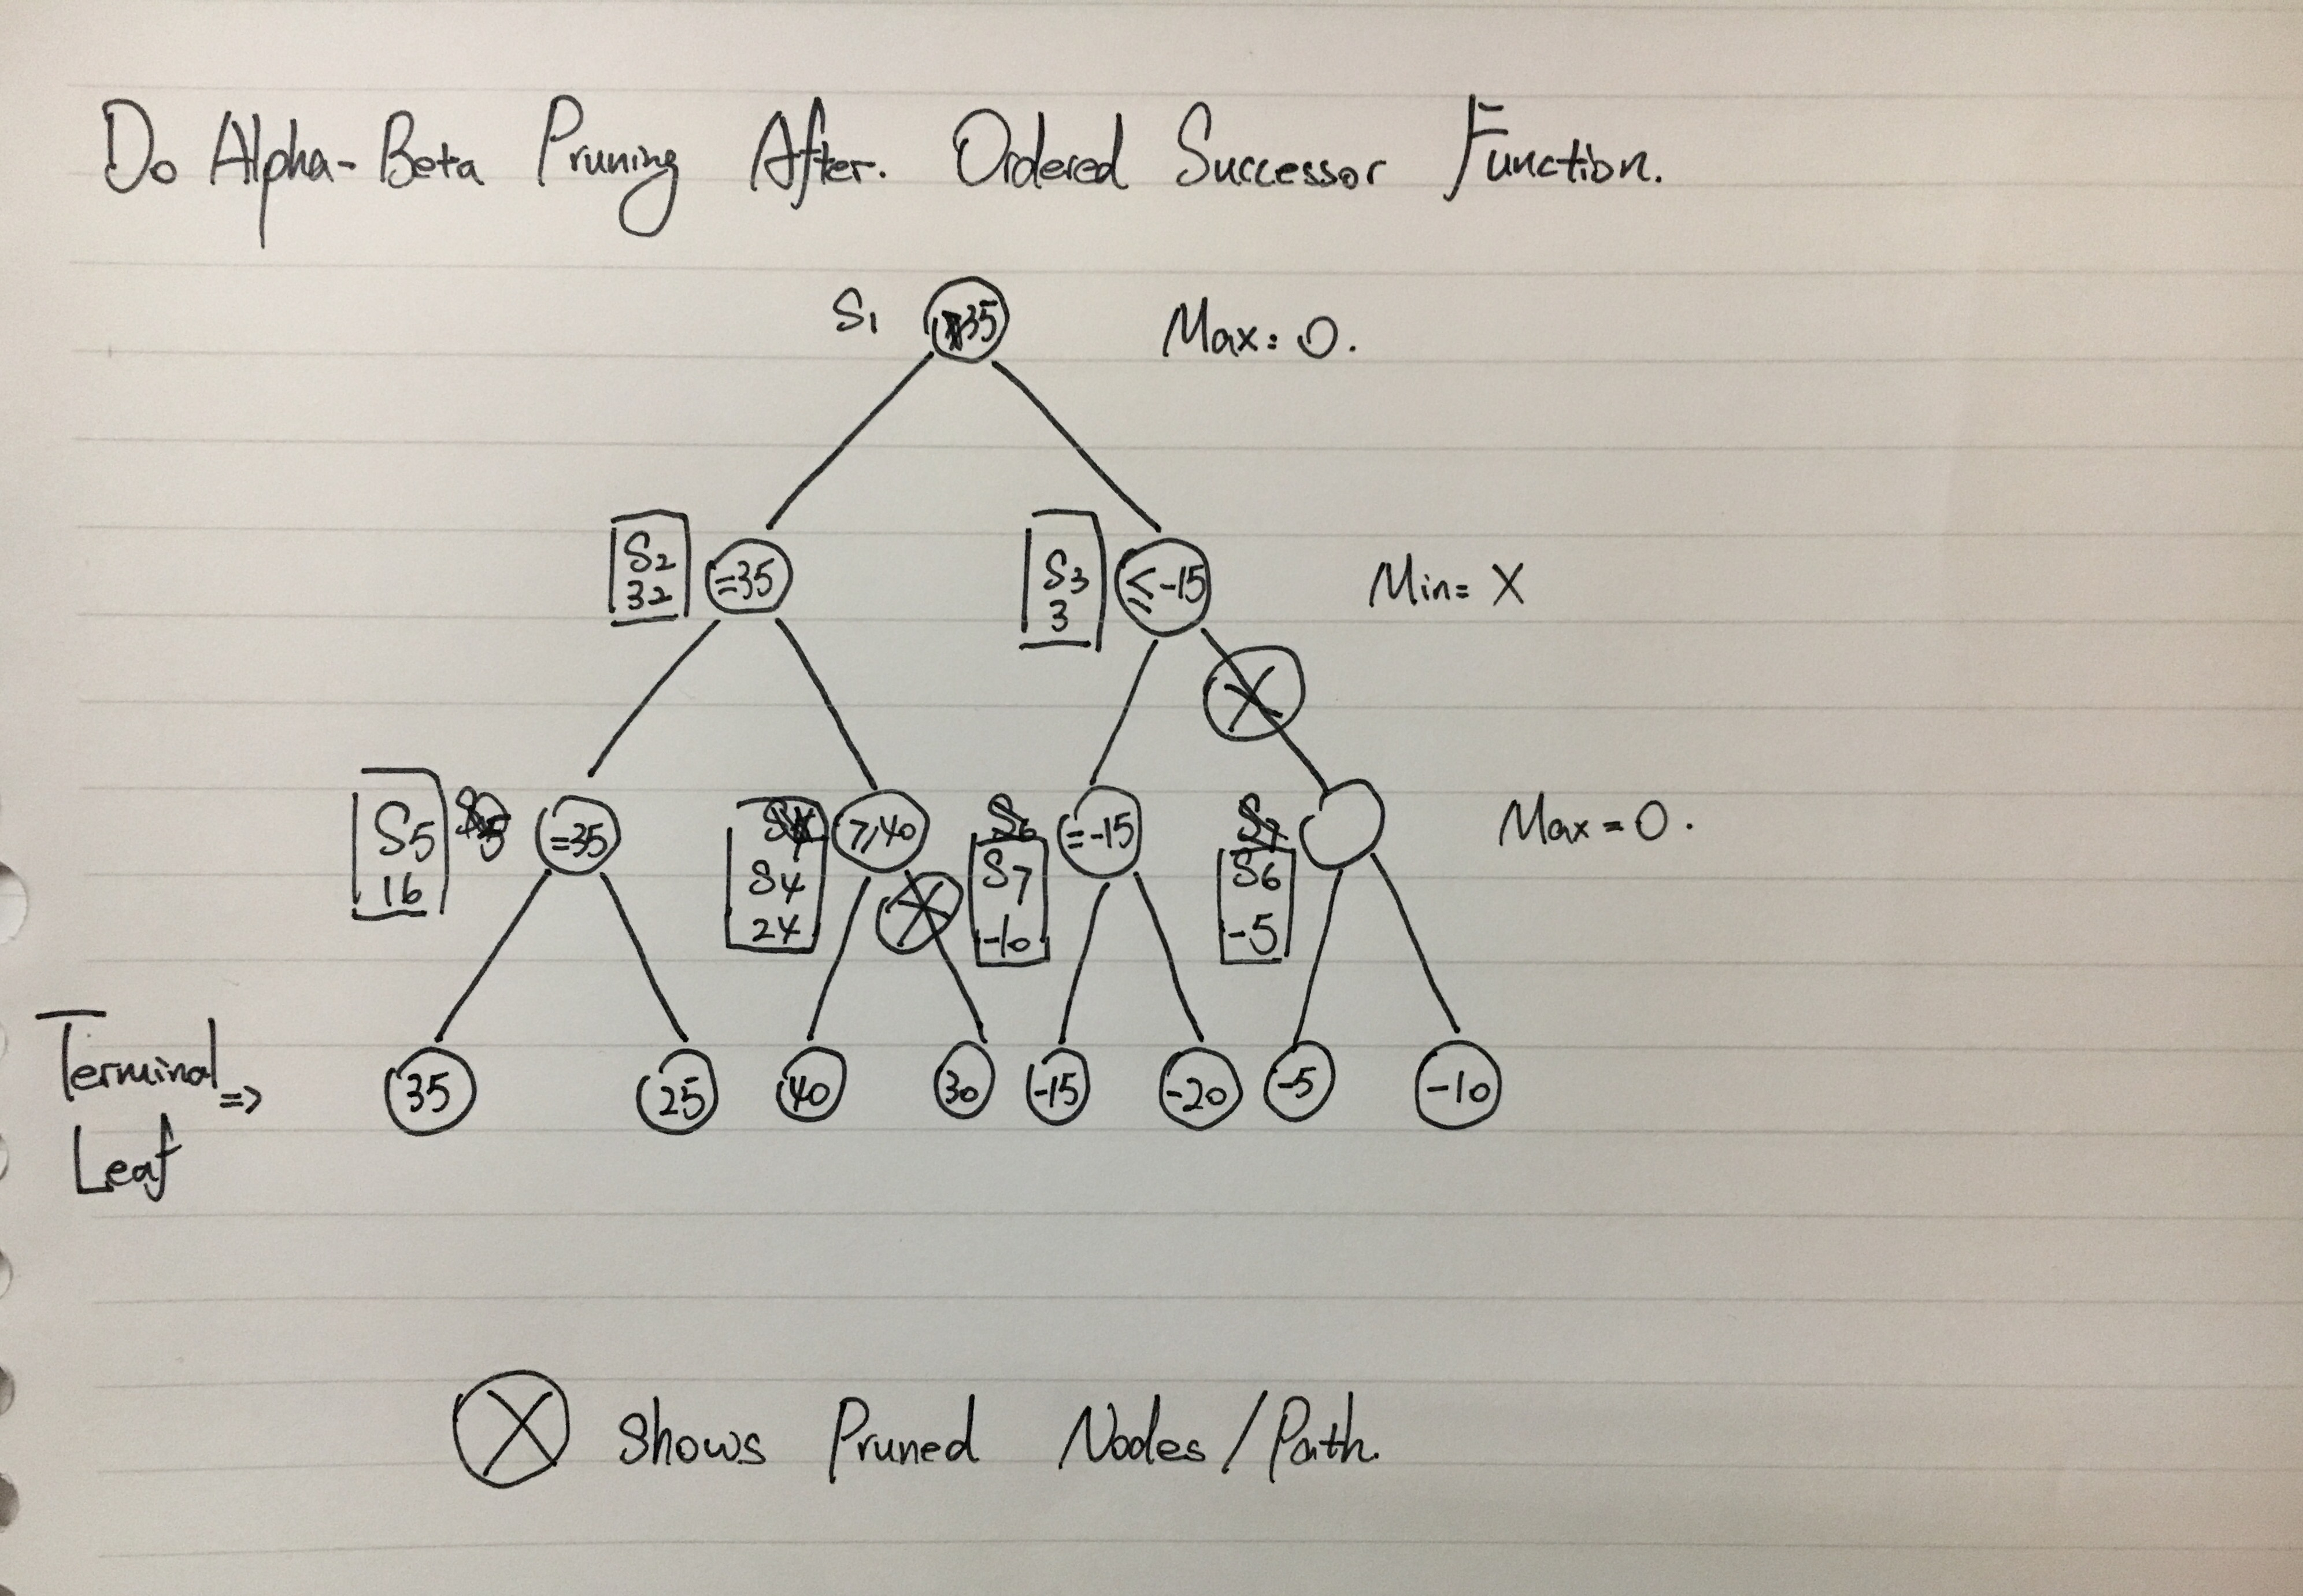 Do Alpha-Beta Pruning After. Ordered Successor Function.
S1 35 Max: O.
S2
32
=35
S3
3
≤-15
Min= X
S5
16
=35
S4
24
≥40
S6
S7
-10
=-15
S7
S6
-5
Max = O.
Terminal =>
Leaf
35 25 40 30 -15 -20 -5 -10
X shows Pruned Nodes/Path.